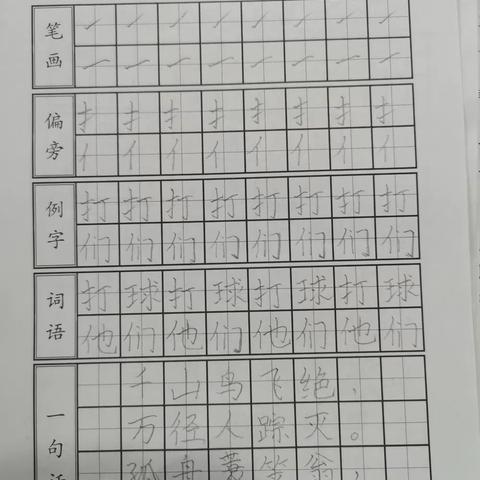 笔画
偏旁
扌扌扌扌扌扌扌扌
亻亻亻亻亻亻亻亻
例字
打打打打打打打打
们们们们们们们们
词语
打球打球打球打球
他们他们他们他们
一句话
千山鸟飞绝，
万径人踪灭。
孤舟蓑笠翁，